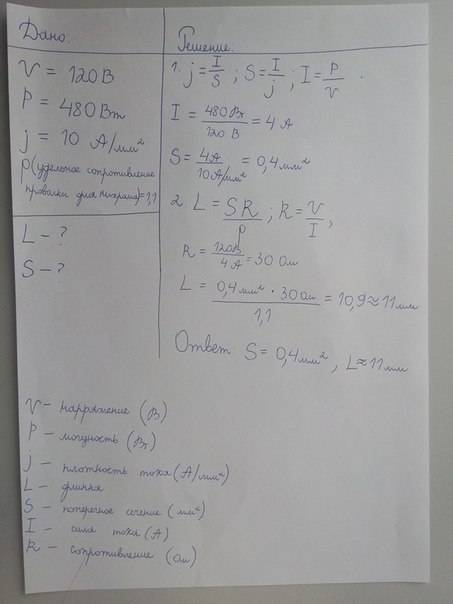 Дано.
V = 120 В
P = 480 Вт
j = 10 А/мм²
ρ(удельное сопротивление
проволки для нихрома)=1,1
L - ?
S - ?
Решение.
1. j = I/S ; S = I/j ; I = P/V
I = 480 Вт/120 В = 4 А
S = 4А/10А/мм² = 0,4 мм²
2. L = SR/ρ ; R = V/I ,
R = 120В/4А = 30 Ом
L = 0,4 мм² · 30 Ом/1,1 = 10,9 ≈ 11 мм
Ответ S = 0,4 мм² , L ≈ 11 мм
V - напряжение (В)
P - мощность (Вт)
j - плотность тока (А/мм²)
L - длинна
S - поперечное сечение (мм²)
I - сила тока (А)
R - сопротивление (Ом)